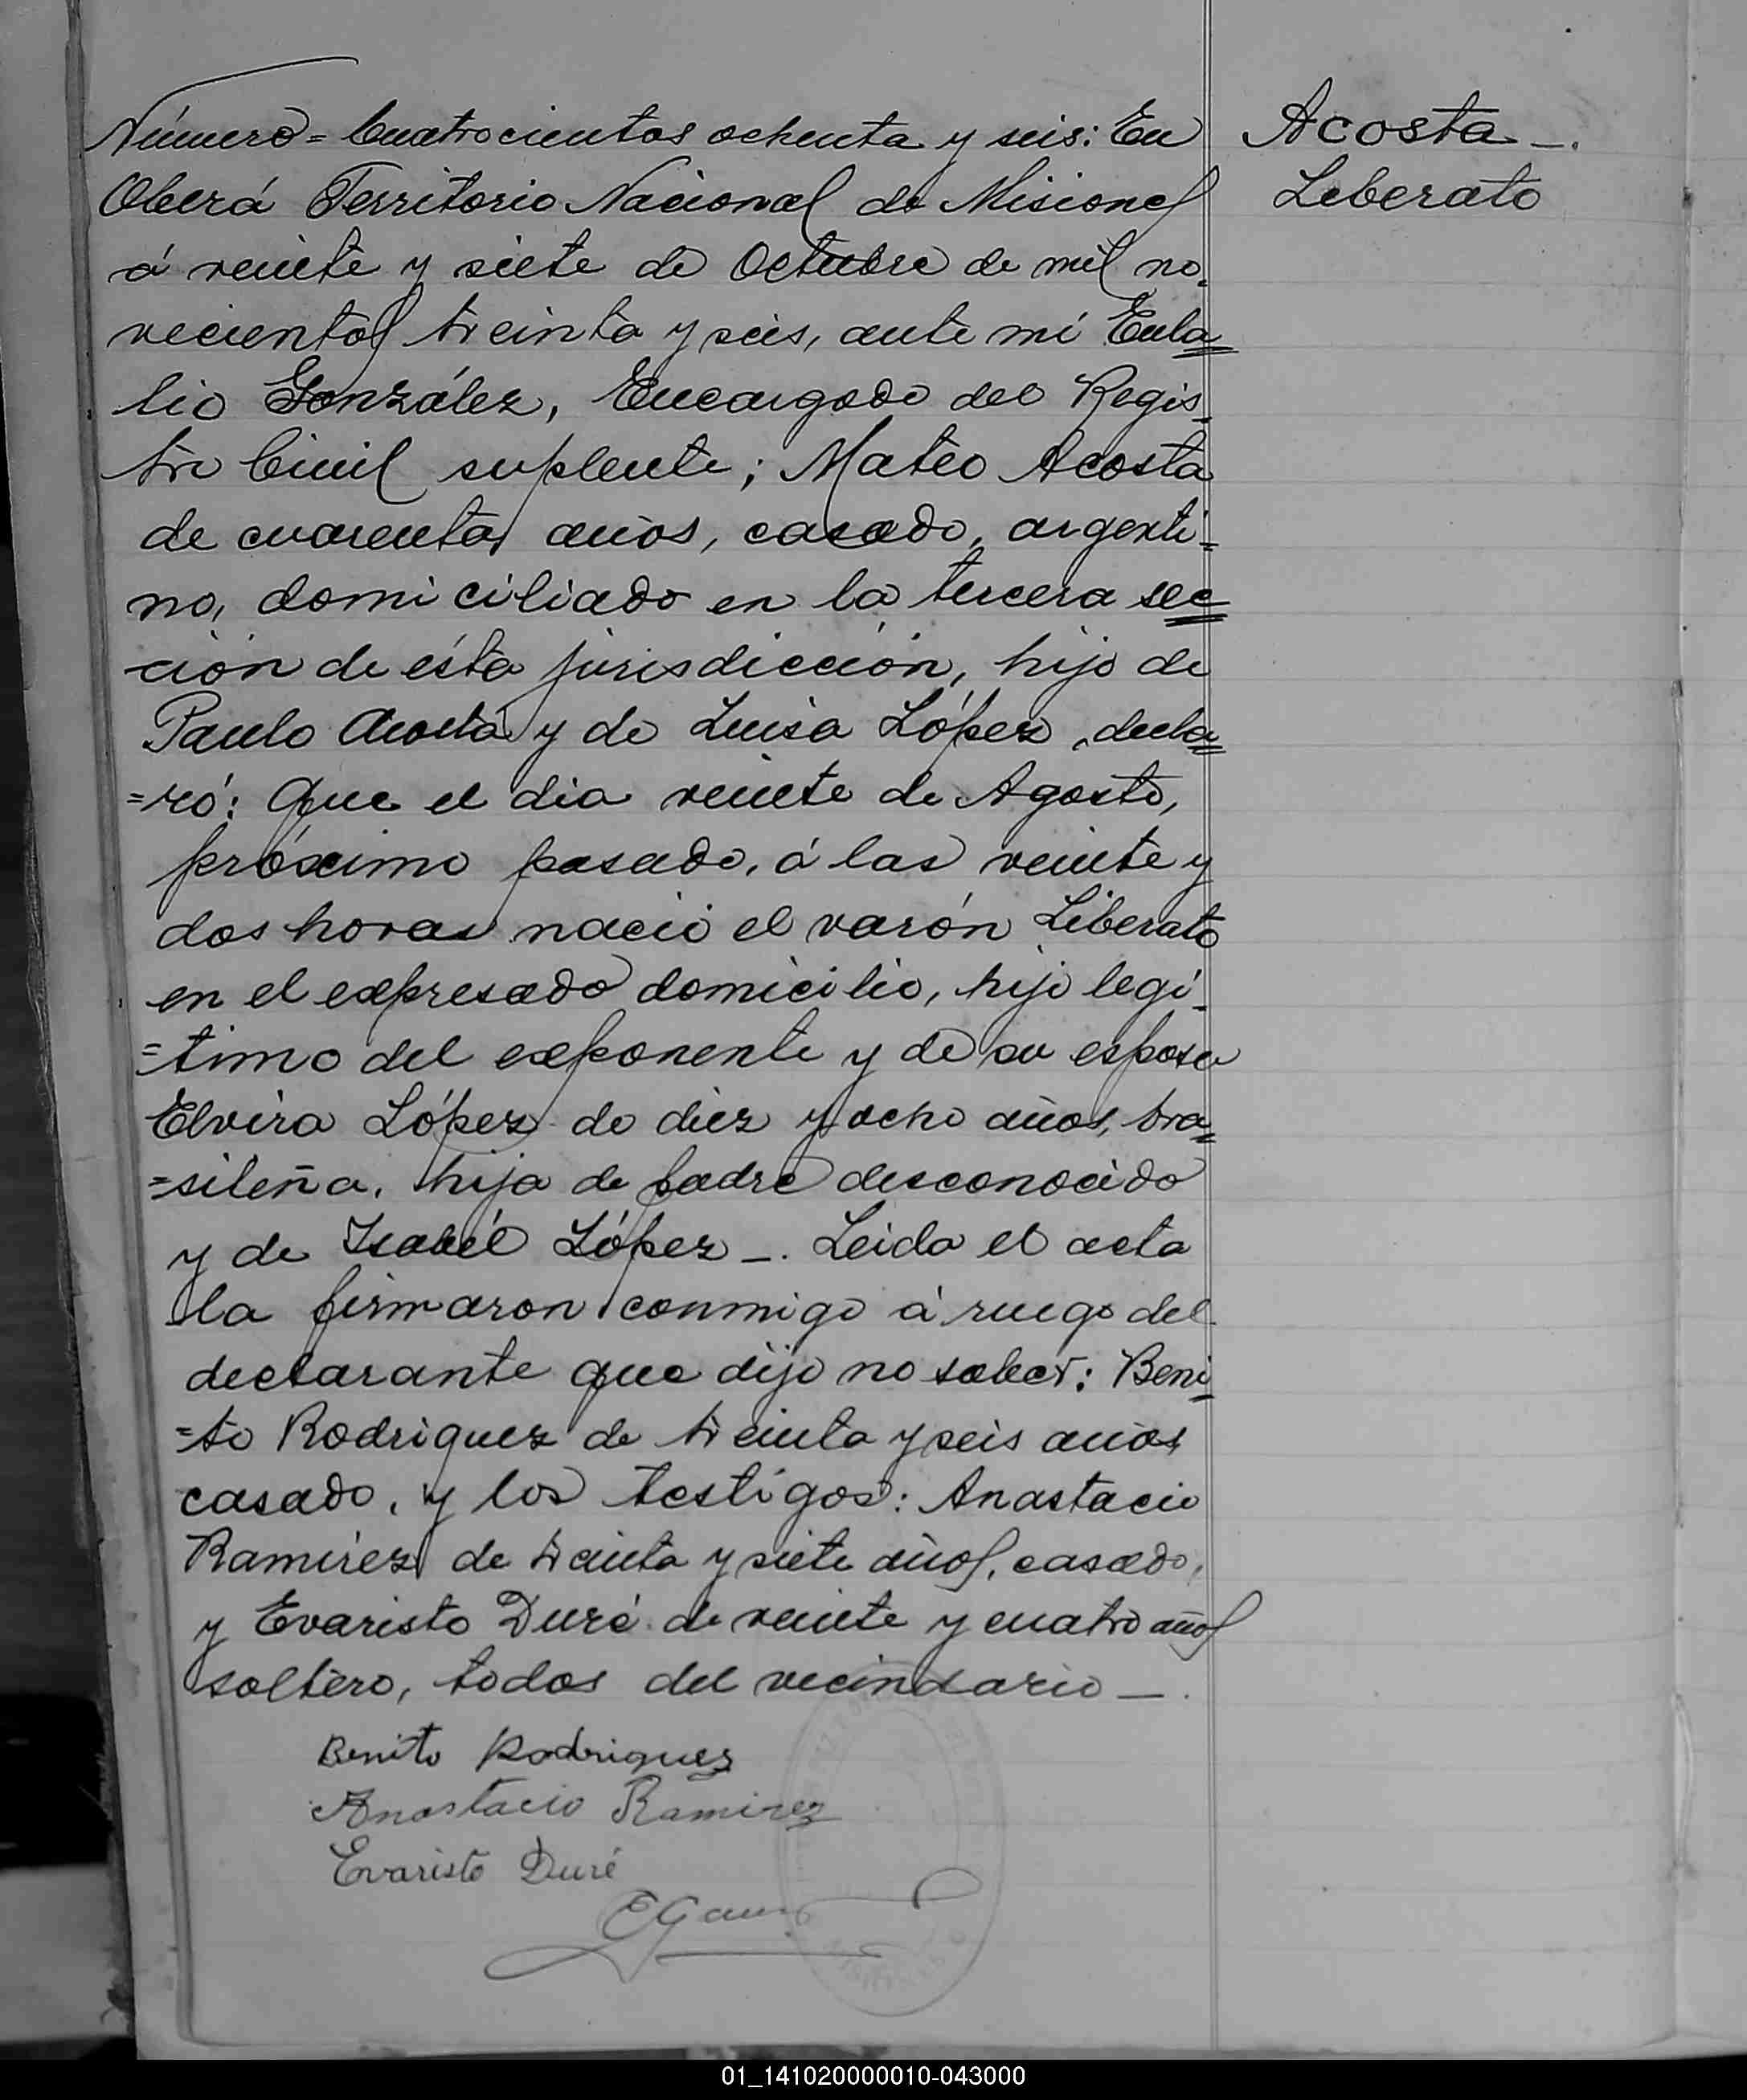 Número = Cuatrocientos ochenta y seis: En
Oberá Territorio Nacional de Misiones
á veinte y siete de Octubre de mil no-
vecientos treinta y seis, ante mí Eula=
lio González, Encargado del Regis-
tro Civil suplente; Mateo Acosta
de cuarenta años, casado, argenti=
no, domiciliado en la tercera sec=
ción de ésta jurisdicción, hijo de
Paulo Acosta y de Luisa López, decla=
=ró: Que el dia veinte de Agosto,
próximo pasado, á las veinte y
dos horas nació el varón Liberato
en el expresado domicilio, hijo legí-
=timo del exponente y de su esposa
Elvira López de diez y ocho años, bra=
=sileña, hija de padre desconocido
y de Isabél López _. Leida el acta
la firmaron conmigo á ruego del
declarante que dijo no saber: Beni=
=to Rodriguez de treinta y seis años
casado, y los testigos: Anastacio
Ramírez de treinta y siete años, casado,
y Evaristo Duré de veinte y cuatro años
soltero, todos del vecindario _.
Benito Rodriguez
Anastacio Ramirez
Evaristo Duré
Acosta _.
Leberato
01_141020000010-043000